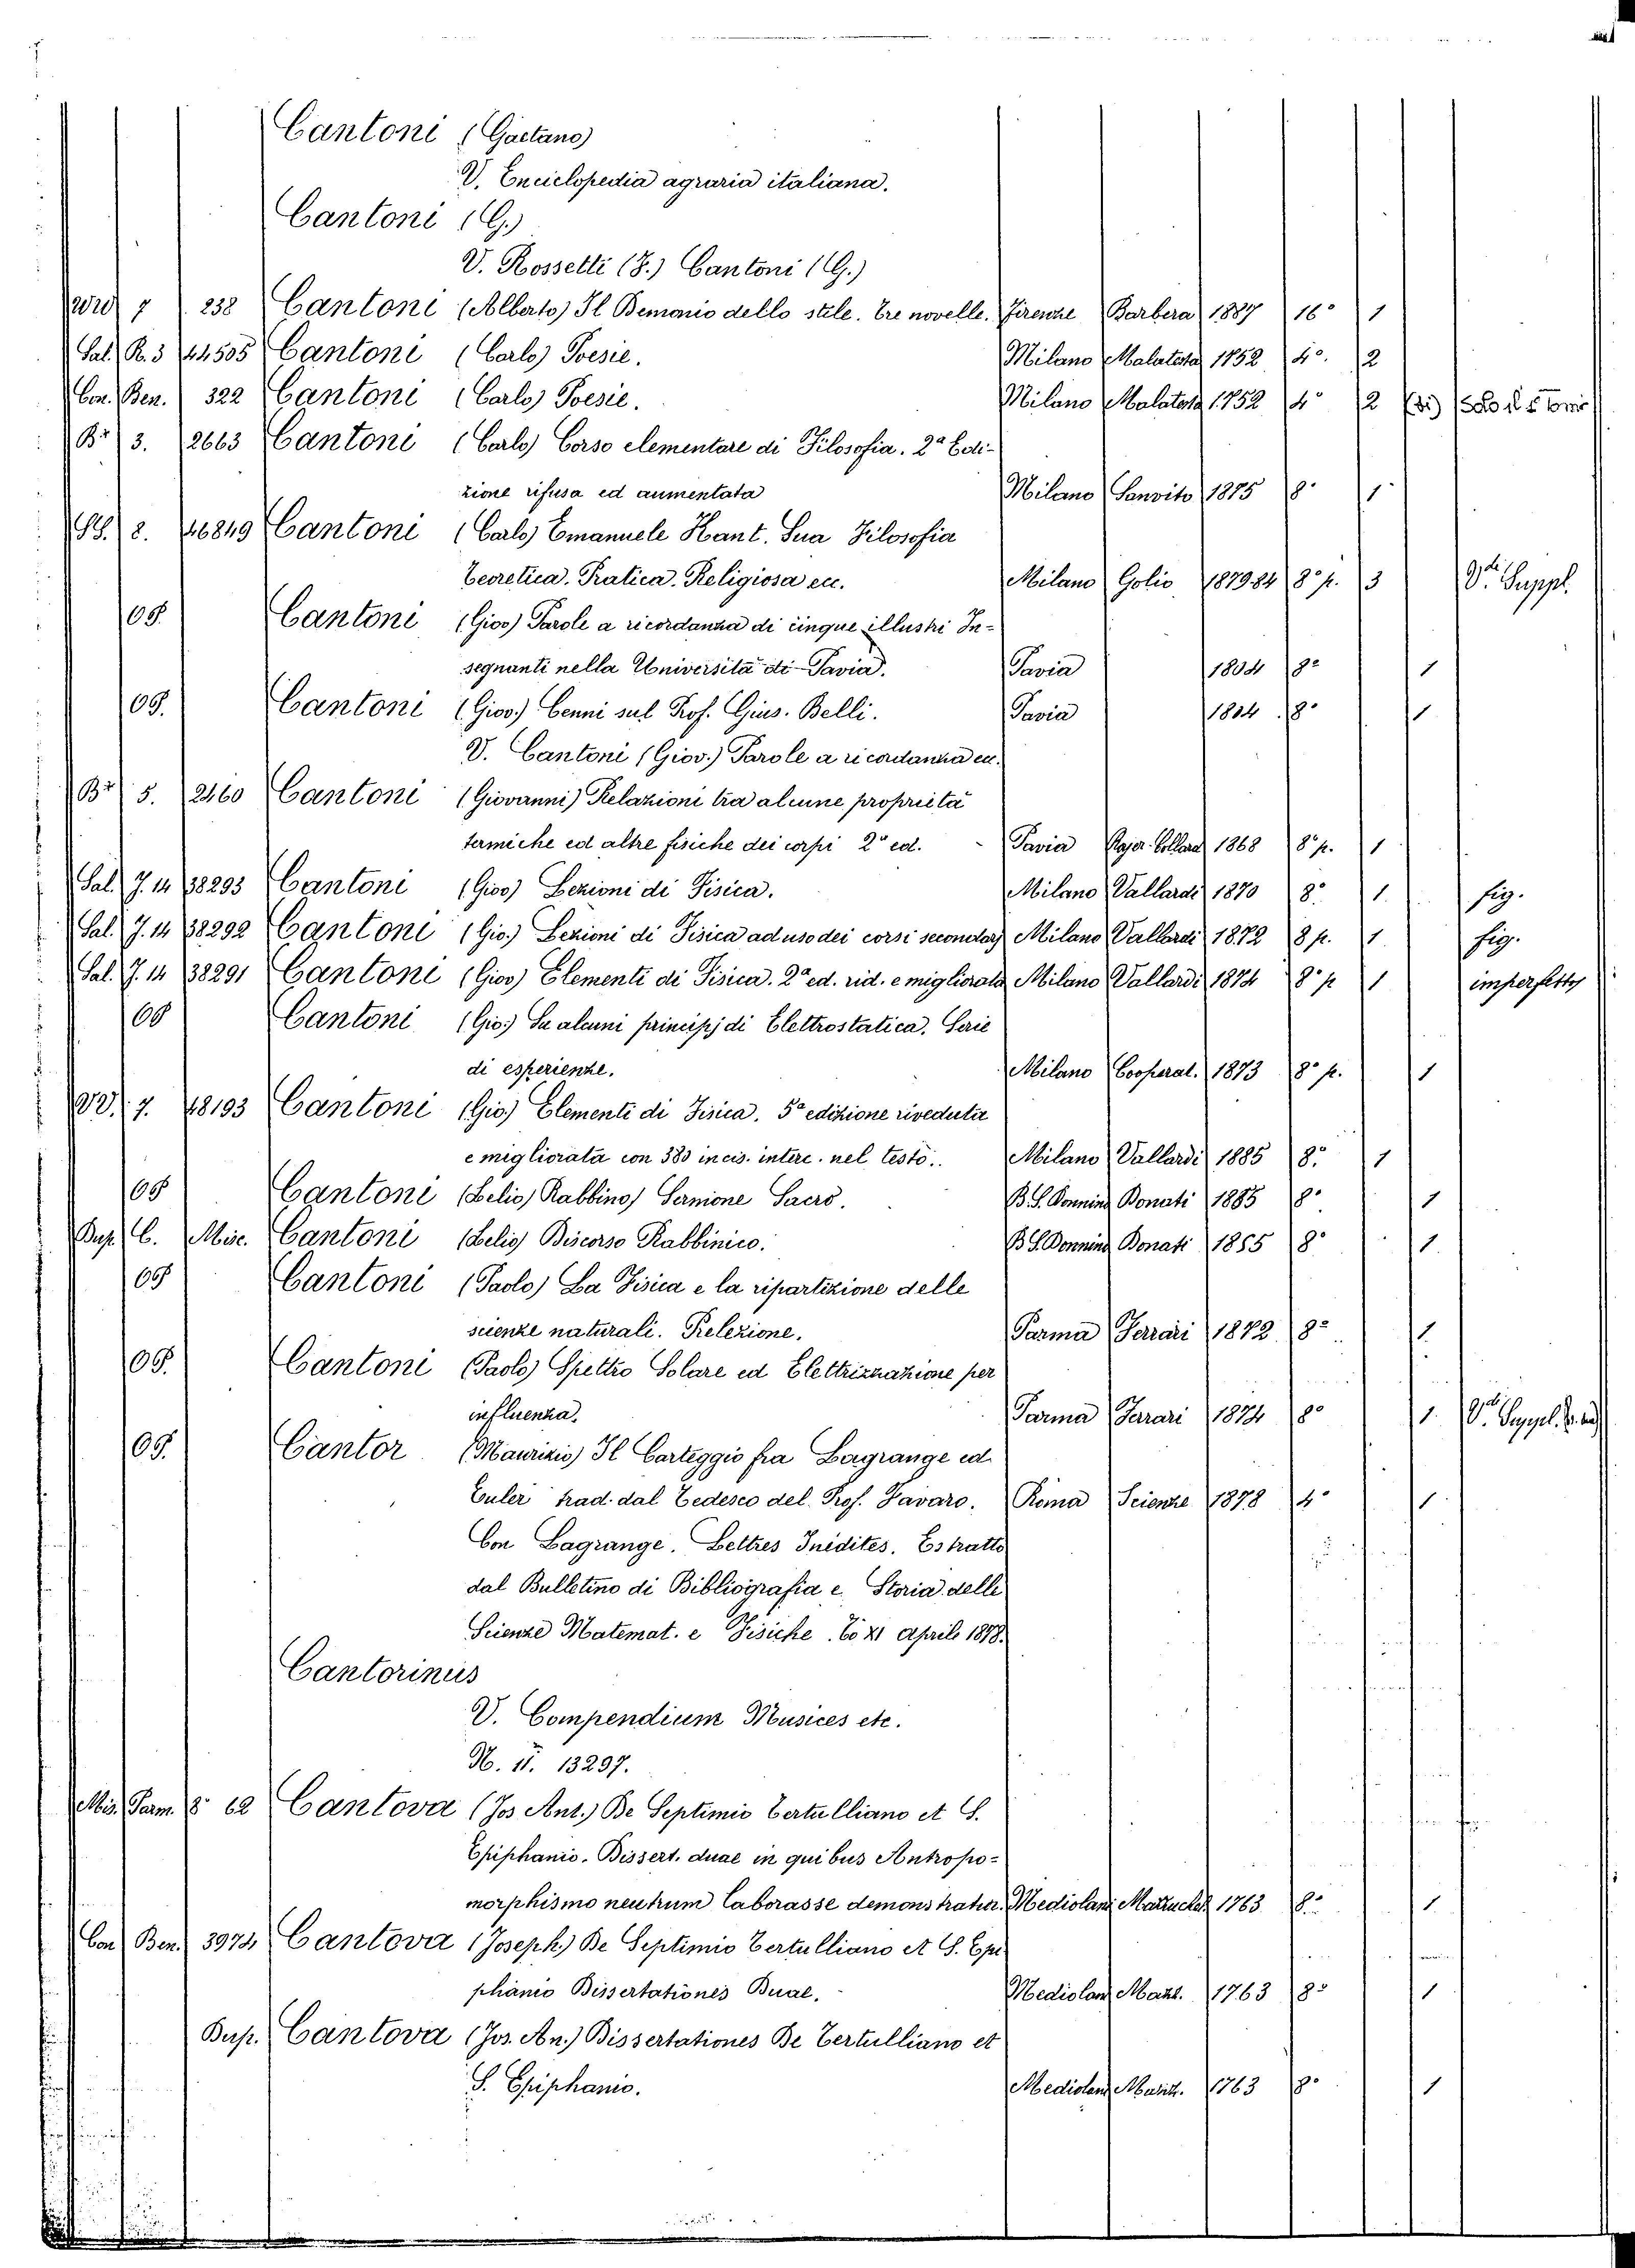 Cantoni (Gaetano)
V. Enciclopedia agraria italiana.
Cantoni (G.)
V. Rossetti (F.) Cantoni (G.)
7 238 Cantoni (Alberto) Il Demonio dello stile. Tre novelle. Firenze Barbera 1887 16° 1
Sal. R. 3 44505 Cantoni (Carlo) Poesie. Milano Malatesta 1752 4°. 2
Con. Ben. 322 Cantoni (Carlo) Poesie. Milano Malatesta 1752 4° 2 solo il tomo
Br 3. 2663 Cantoni (Carlo) Corso elementare di Filosofia. 2ª Edi-
zione rifusa ed aumentata Milano Sanvito 1875 8° 1
2. 46849 Cantoni (Carlo) Emanuele Kant. Sua Filosofia
Teoretica. Pratica. Religiosa ecc. Milano Golio 1879 84 8° p. 3 Suppl.
Cantoni (Giov) Parole a ricordanza di cinque illustri In-
segnanti nella Università di Pavia. Pavia 8° 1
Cantoni (Giov.) Cenni sul Prof. Gius. Belli. Pavia 8° 1
V. Cantoni (Giov.) Parole a ricordanza ecc.
Br 5. 2460 Cantoni (Giovanni) Relazioni tra alcune proprietà
termiche ed altre fisiche dei corpi 2ª ed. - Pavia 1868 8° p. 1
Sal. J. 14 38293 Cantoni (Giov) Lezioni di Fisica. Milano Vallardi 1870 8° 1 fig.
Sal. J. 14 38292 Cantoni (Gio.) Lezioni di Fisica ad uso dei corsi secondarj Milano Vallardi 1872 8 p. 1 fig.
Sal. J. 14 38291 Cantoni (Giov) Elementi di Fisica. 2ª ed. rid. e migliorata Milano Vallardi 1874 8° p 1 imperfetto
Cantoni (Gio.) Su alcuni principj di Elettrostatica. Serie
di esperienze. Milano Cooperat. 1873 8° p. 1
7. 48193 Cantoni (Gio) Elementi di Fisica. 5ª edizione riveduta
e migliorata con 380 incis. interc. nel testo. Milano Vallardi 1885 8° 1
Cantoni (Lelio) Rabbino) Sermone Sacro. B. S. Donnino Donati 8° 1
Dup. C. Misc. Cantoni (Lelio) Discorso Rabbinico. B S. Donnino Donati 8° 1
Cantoni (Paolo) La Fisica e la ripartizione delle
scienze naturali. Prelezione. Parma Ferrari 1872 8° 1
Cantoni (Paolo) Spettro Solare ed Elettrizzazione per
influenza. Parma Ferrari 1874 8° 1 Suppl.
Cantor (Maurizio) Il Carteggio fra Lagrange ed
Euler trad. dal Tedesco del Prof. Favaro. Roma Scienze 1878 4° 1
Con Lagrange. Lettres Inédites. Estratto
dal Bulletino di Bibliografia e Storia delle
Scienze Matemat. e Fisiche. To XI Aprile 1878.
Cantorinus
V. Compendium Musices etc.
N. 11. 13297.
Mis. Parm. 8° 62 Cantova (Jos Ant.) De Septimio Tertulliano et S.
Epiphanio. Dissert. duae in quibus Antropo-
morphismo neutrum laborasse demonstratur. Mediolani 1763 8° 1
Con Ben. 3974 Cantova (Joseph) De Septimio Tertulliano et S. Epi
phanio Dissertationes Duae. Mediolan 1763 8° 1
Dup. Cantova (Jos. An.) Dissertationes De Tertulliano et
S. Epiphanio. Mediolani 1763 8° 1